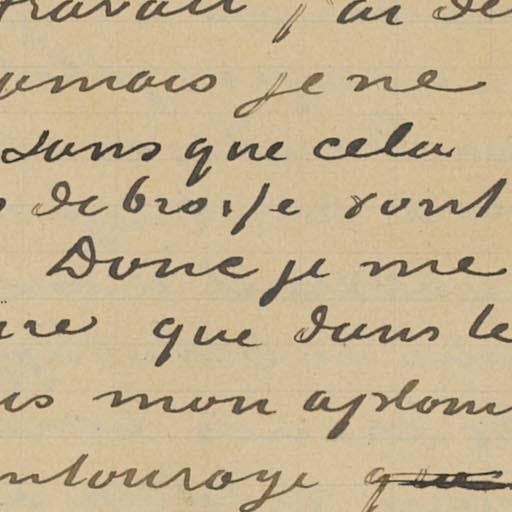 travail j'ai de
jamais je ne
sans que cela
debrosse vont
Donc je me
ire que dans le
us mon aplom
ntourage que